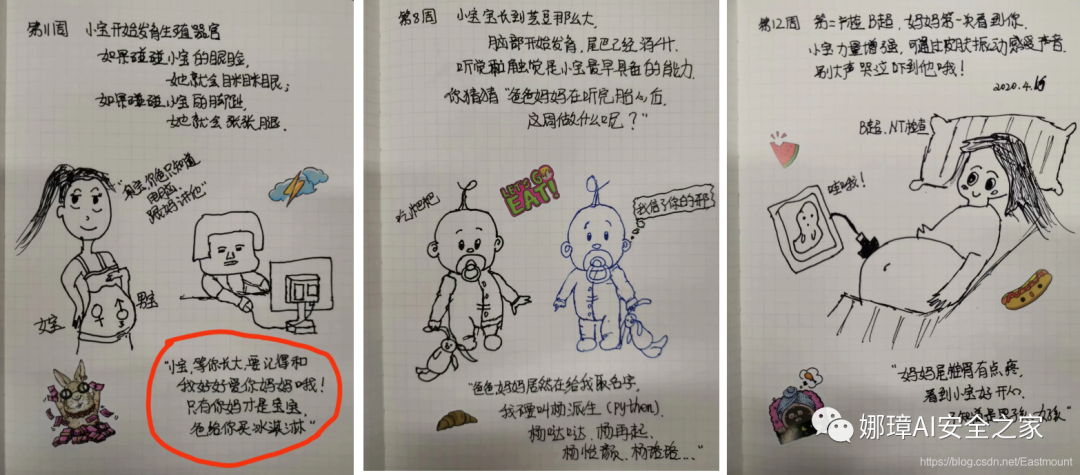 第11周 小宝开始发育生殖器官
如果碰碰小宝的眼睑,
她就会眯眯眼;
如果碰碰小宝的脚趾,
她就会张张腿.
"乖宝,你爸只知道
电脑,
跟妈讲他"
女宝
男宝
"小宝,等你长大,要记得和
我好好爱你妈妈哦!
只有你妈才是宝宝,
爸给你买冰淇淋"
第8周 小宝宝长到芸豆那么大,
脑部开始发育,尾巴已经消失.
听觉和触觉是小宝最早具备的能力.
你猜猜"爸爸妈妈在听完胎心后,
这周做什么呢?"
LET'S GO
EAT!
吃粑粑
我信了你的邪
"爸爸妈妈居然在给我取名字,
我不要叫杨派生(python).
杨哒哒、杨再起、
杨悦
第12周 第二次检B超,妈妈第一次看到你.
小宝力量增强,可通过皮肤振动感受声音.
别大声哭泣吓到他哦!
2020.4.16
B超、NT检查
哇哦!
"妈妈尾椎骨有点疼,
看到小宝好开心,
娜璋AI安全之家
https://blog.csdn.net/Eastmount